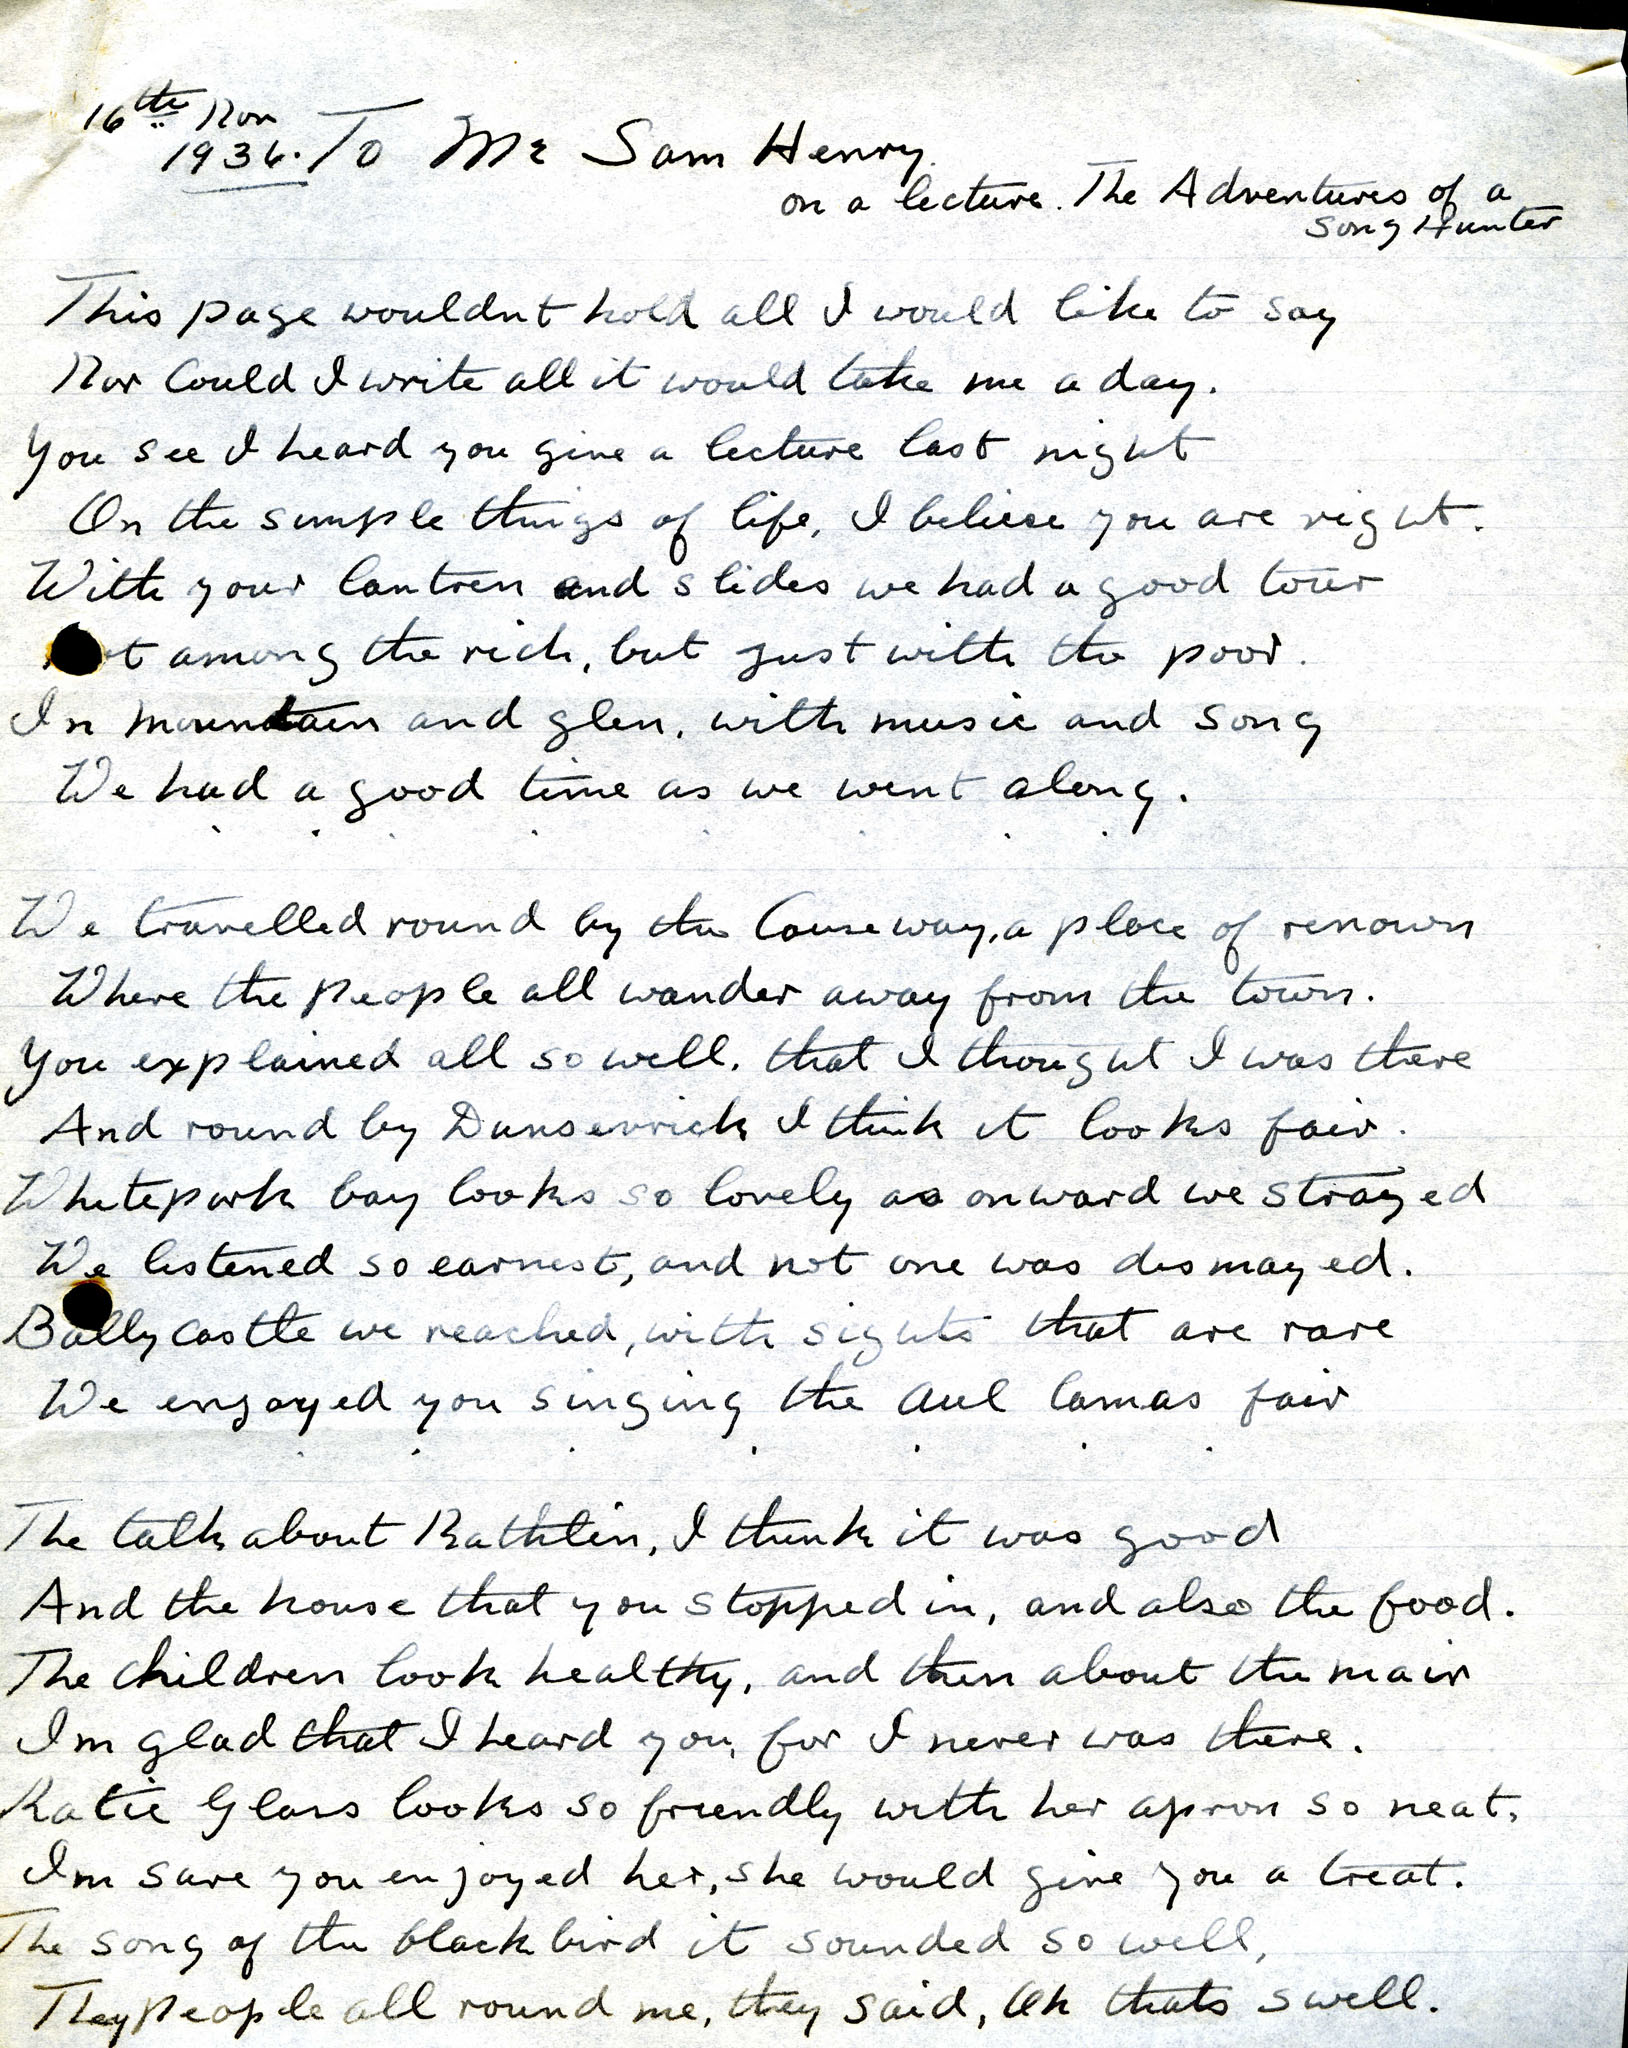 16th Nov
1936. To Mr Sam Henry.
on a lecture. The Adventures of a
Song Hunter
This page wouldnt hold all I would like to say
Nor Could I write all it would take me a day.
You see I heard you give a lecture last night
On the simple things of life, I believe you are right.
With your lantren and slides we had a good tour
t among the rich, but just with the poor.
In mountain and glen, with music and song
We had a good time as we went along.
We travelled round by the Causeway, a place of renown
Where the people all wander away from the town.
You explained all so well, that I thought I was there
And round by Dunserrick I think it looks fair.
Whitepark bay looks so lovely as onward we strayed
We listened so earnest, and not one was dismayed.
Ballycastle we reached, with sights that are rare
We enjoyed you singing the Aul lamas fair
The talk about Rathlin, I think it was good
And the house that you stopped in, and also the food.
The children look healthy, and then about the mair
Im glad that I heard you, for I never was there.
Katie Glass looks so friendly with her apron so neat,
Im sure you enjoyed her, she would give you a treat.
The song of the blackbird it sounded so well,
They people all round me, they said, Oh thats swell.